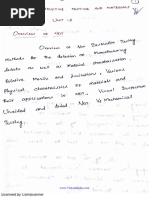 DESTRUCTIVE TESTING AND MATERIALS
UNIT-I
OVERVIEW OF NDT
Overview of Non Destructive Testing
Methods for the detection of Manufacturing
defects as well as material characterisation.
Relative Merits and limitations, Various
Physical characteristics of materials and
their applications in NDT. Visual Inspection
Unaided and Aided. Non Vs Mechanical
Testing.
Scanned by CamScanner